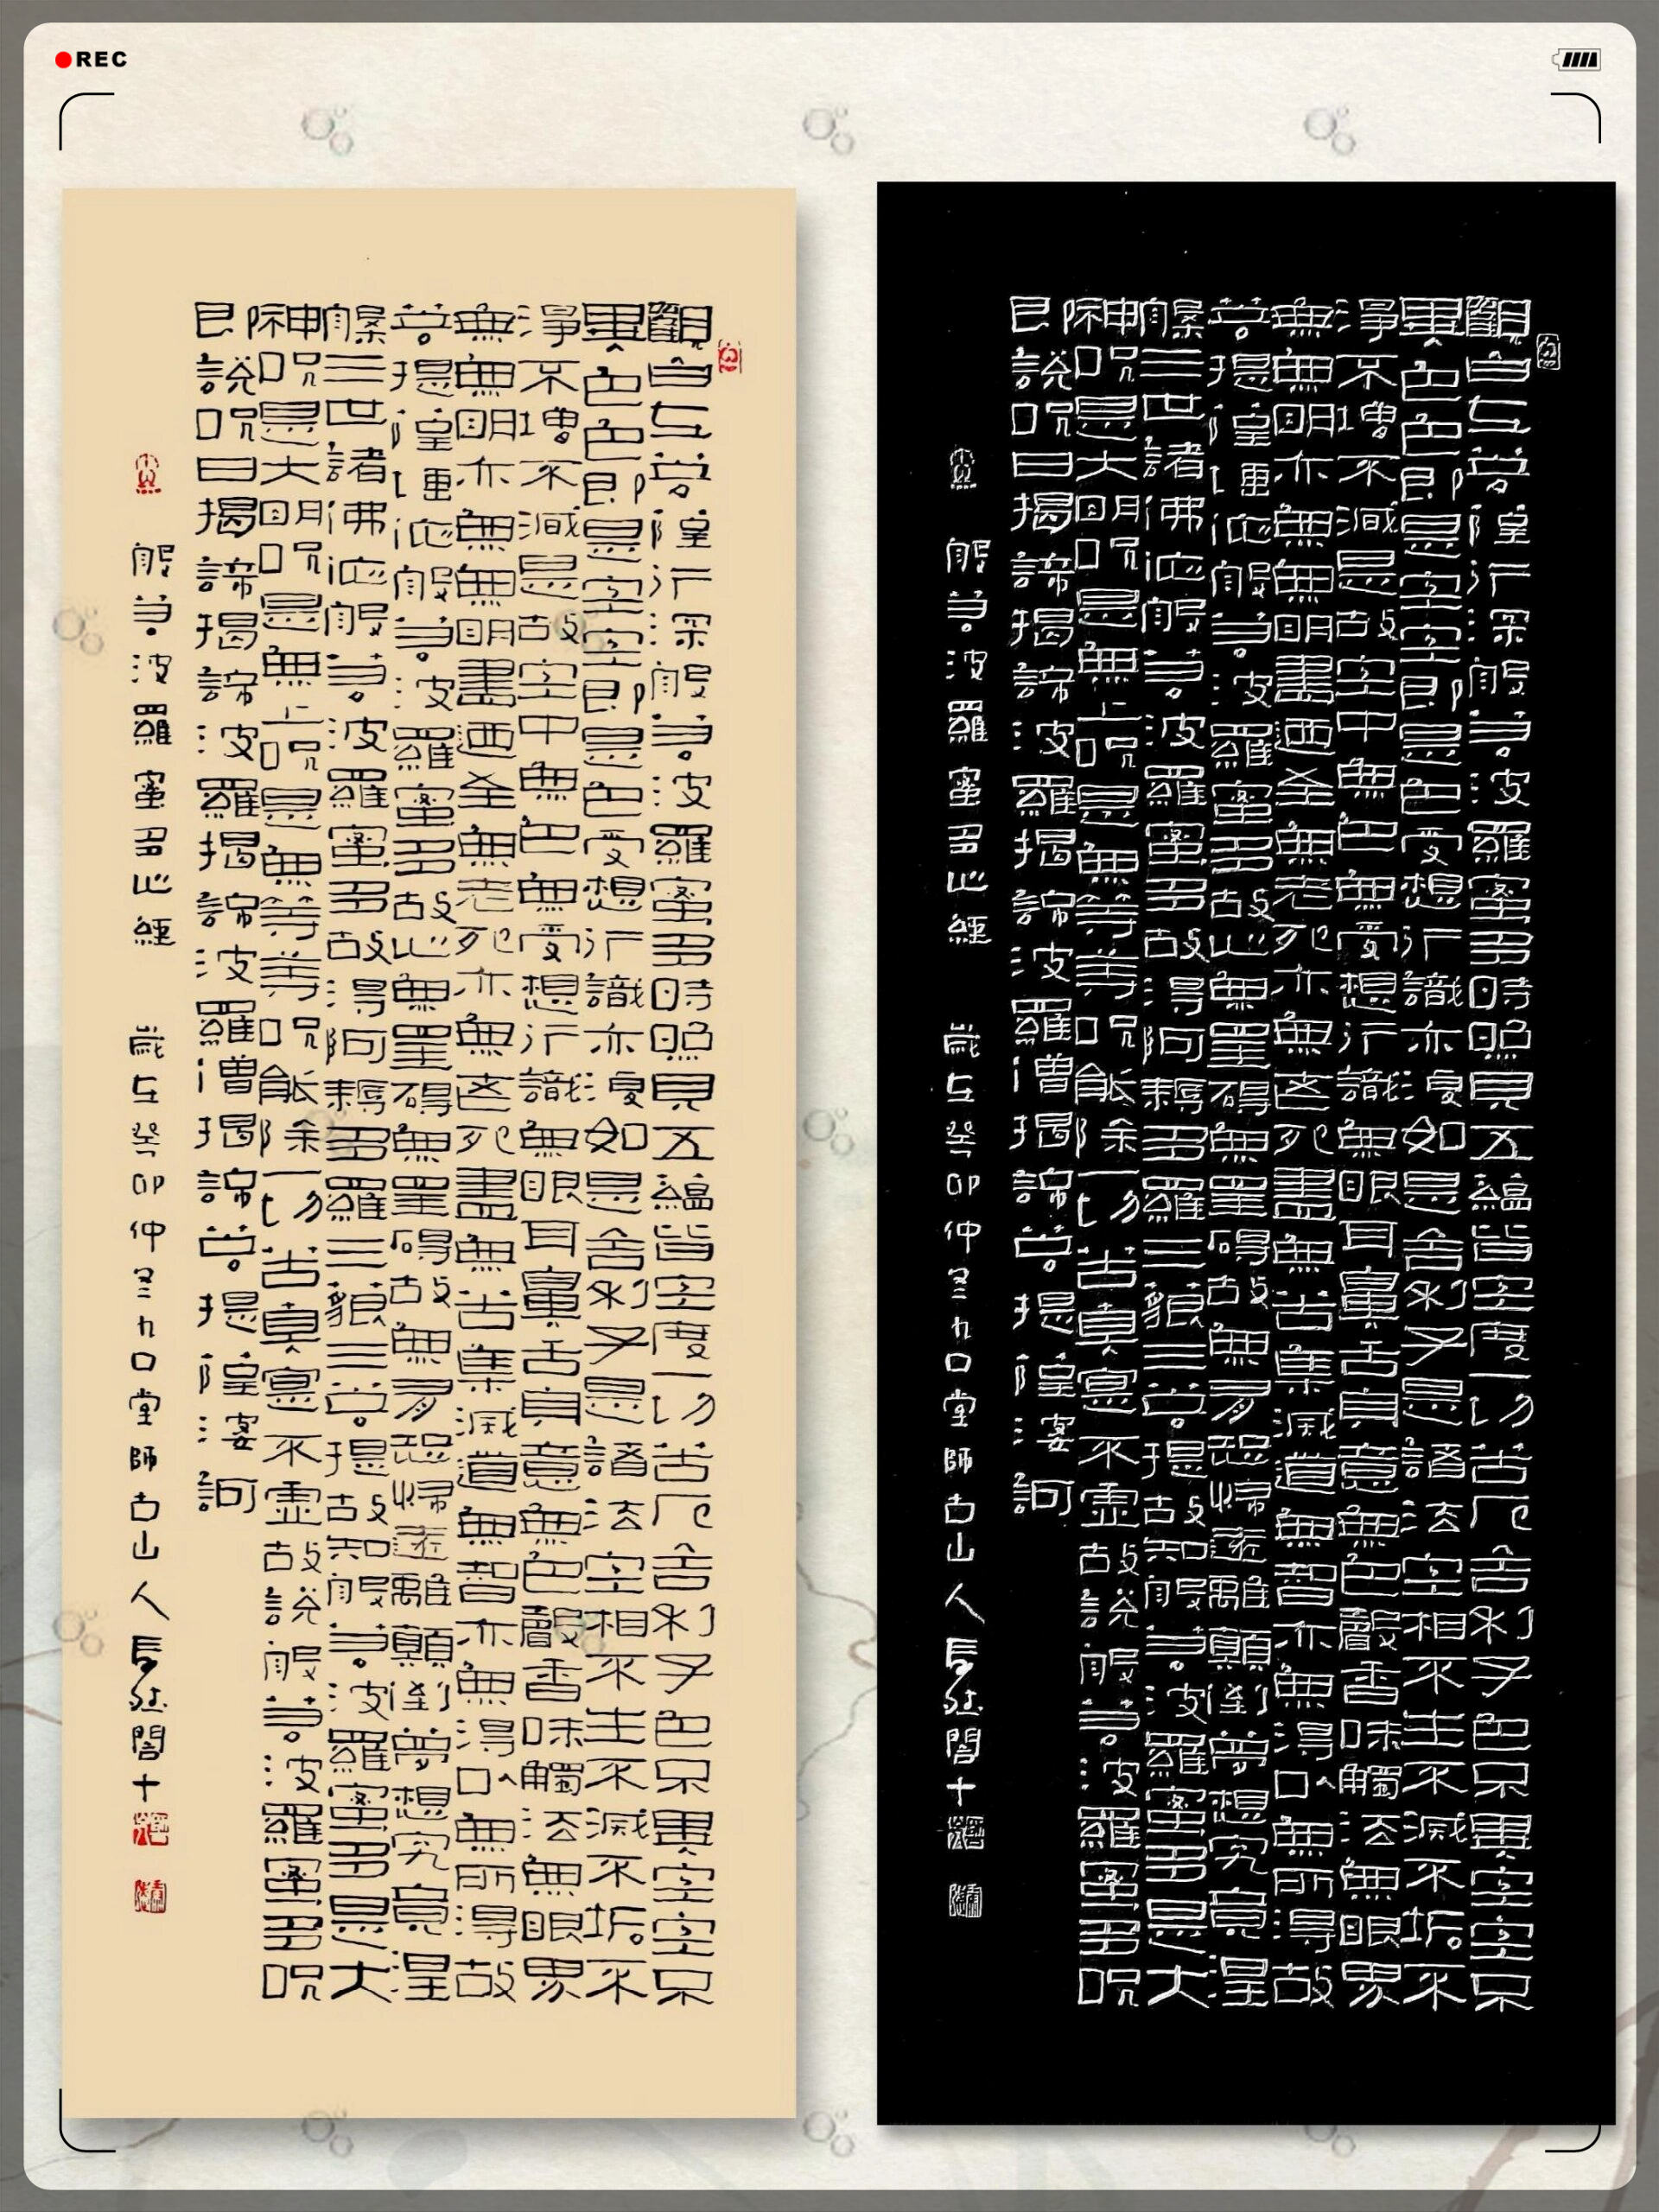 REC
觀自在菩薩行深般若波羅蜜多時照見五蘊皆空度一切苦厄舍利子色不異空空不
異色色即是空空即是色受想行識亦復如是舍利子是諸法空相不生不滅不垢不
淨不增不減是故空中無色無受想行識無眼耳鼻舌身意無色聲香味觸法無眼界
無無明亦無無明盡迺至無老死亦無老死盡無苦集滅道無智亦無得以無所得故
菩提薩埵依般若波羅蜜多故心無罣礙無罣礙故無有恐怖遠離顛倒夢想究竟涅
槃三世諸佛依般若波羅蜜多故得阿耨多羅三藐三菩提故知般若波羅蜜多是大
神咒是大明咒是無上咒是無等等咒能除一切苦真實不虛故說般若波羅蜜多咒
即說咒曰揭諦揭諦波羅揭諦波羅僧揭諦菩提薩婆訶
般若波羅蜜多心經 歲在癸卯仲冬九口堂師古山人
觀自在菩薩行深般若波羅蜜多時照見五蘊皆空度一切苦厄舍利子色不異空空不
異色色即是空空即是色受想行識亦復如是舍利子是諸法空相不生不滅不垢不
淨不增不減是故空中無色無受想行識無眼耳鼻舌身意無色聲香味觸法無眼界
無無明亦無無明盡迺至無老死亦無老死盡無苦集滅道無智亦無得以無所得故
菩提薩埵依般若波羅蜜多故心無罣礙無罣礙故無有恐怖遠離顛倒夢想究竟涅
槃三世諸佛依般若波羅蜜多故得阿耨多羅三藐三菩提故知般若波羅蜜多是大
神咒是大明咒是無上咒是無等等咒能除一切苦真實不虛故說般若波羅蜜多咒
即說咒曰揭諦揭諦波羅揭諦波羅僧揭諦菩提薩婆訶
般若波羅蜜多心經 歲在癸卯仲冬九口堂師古山人